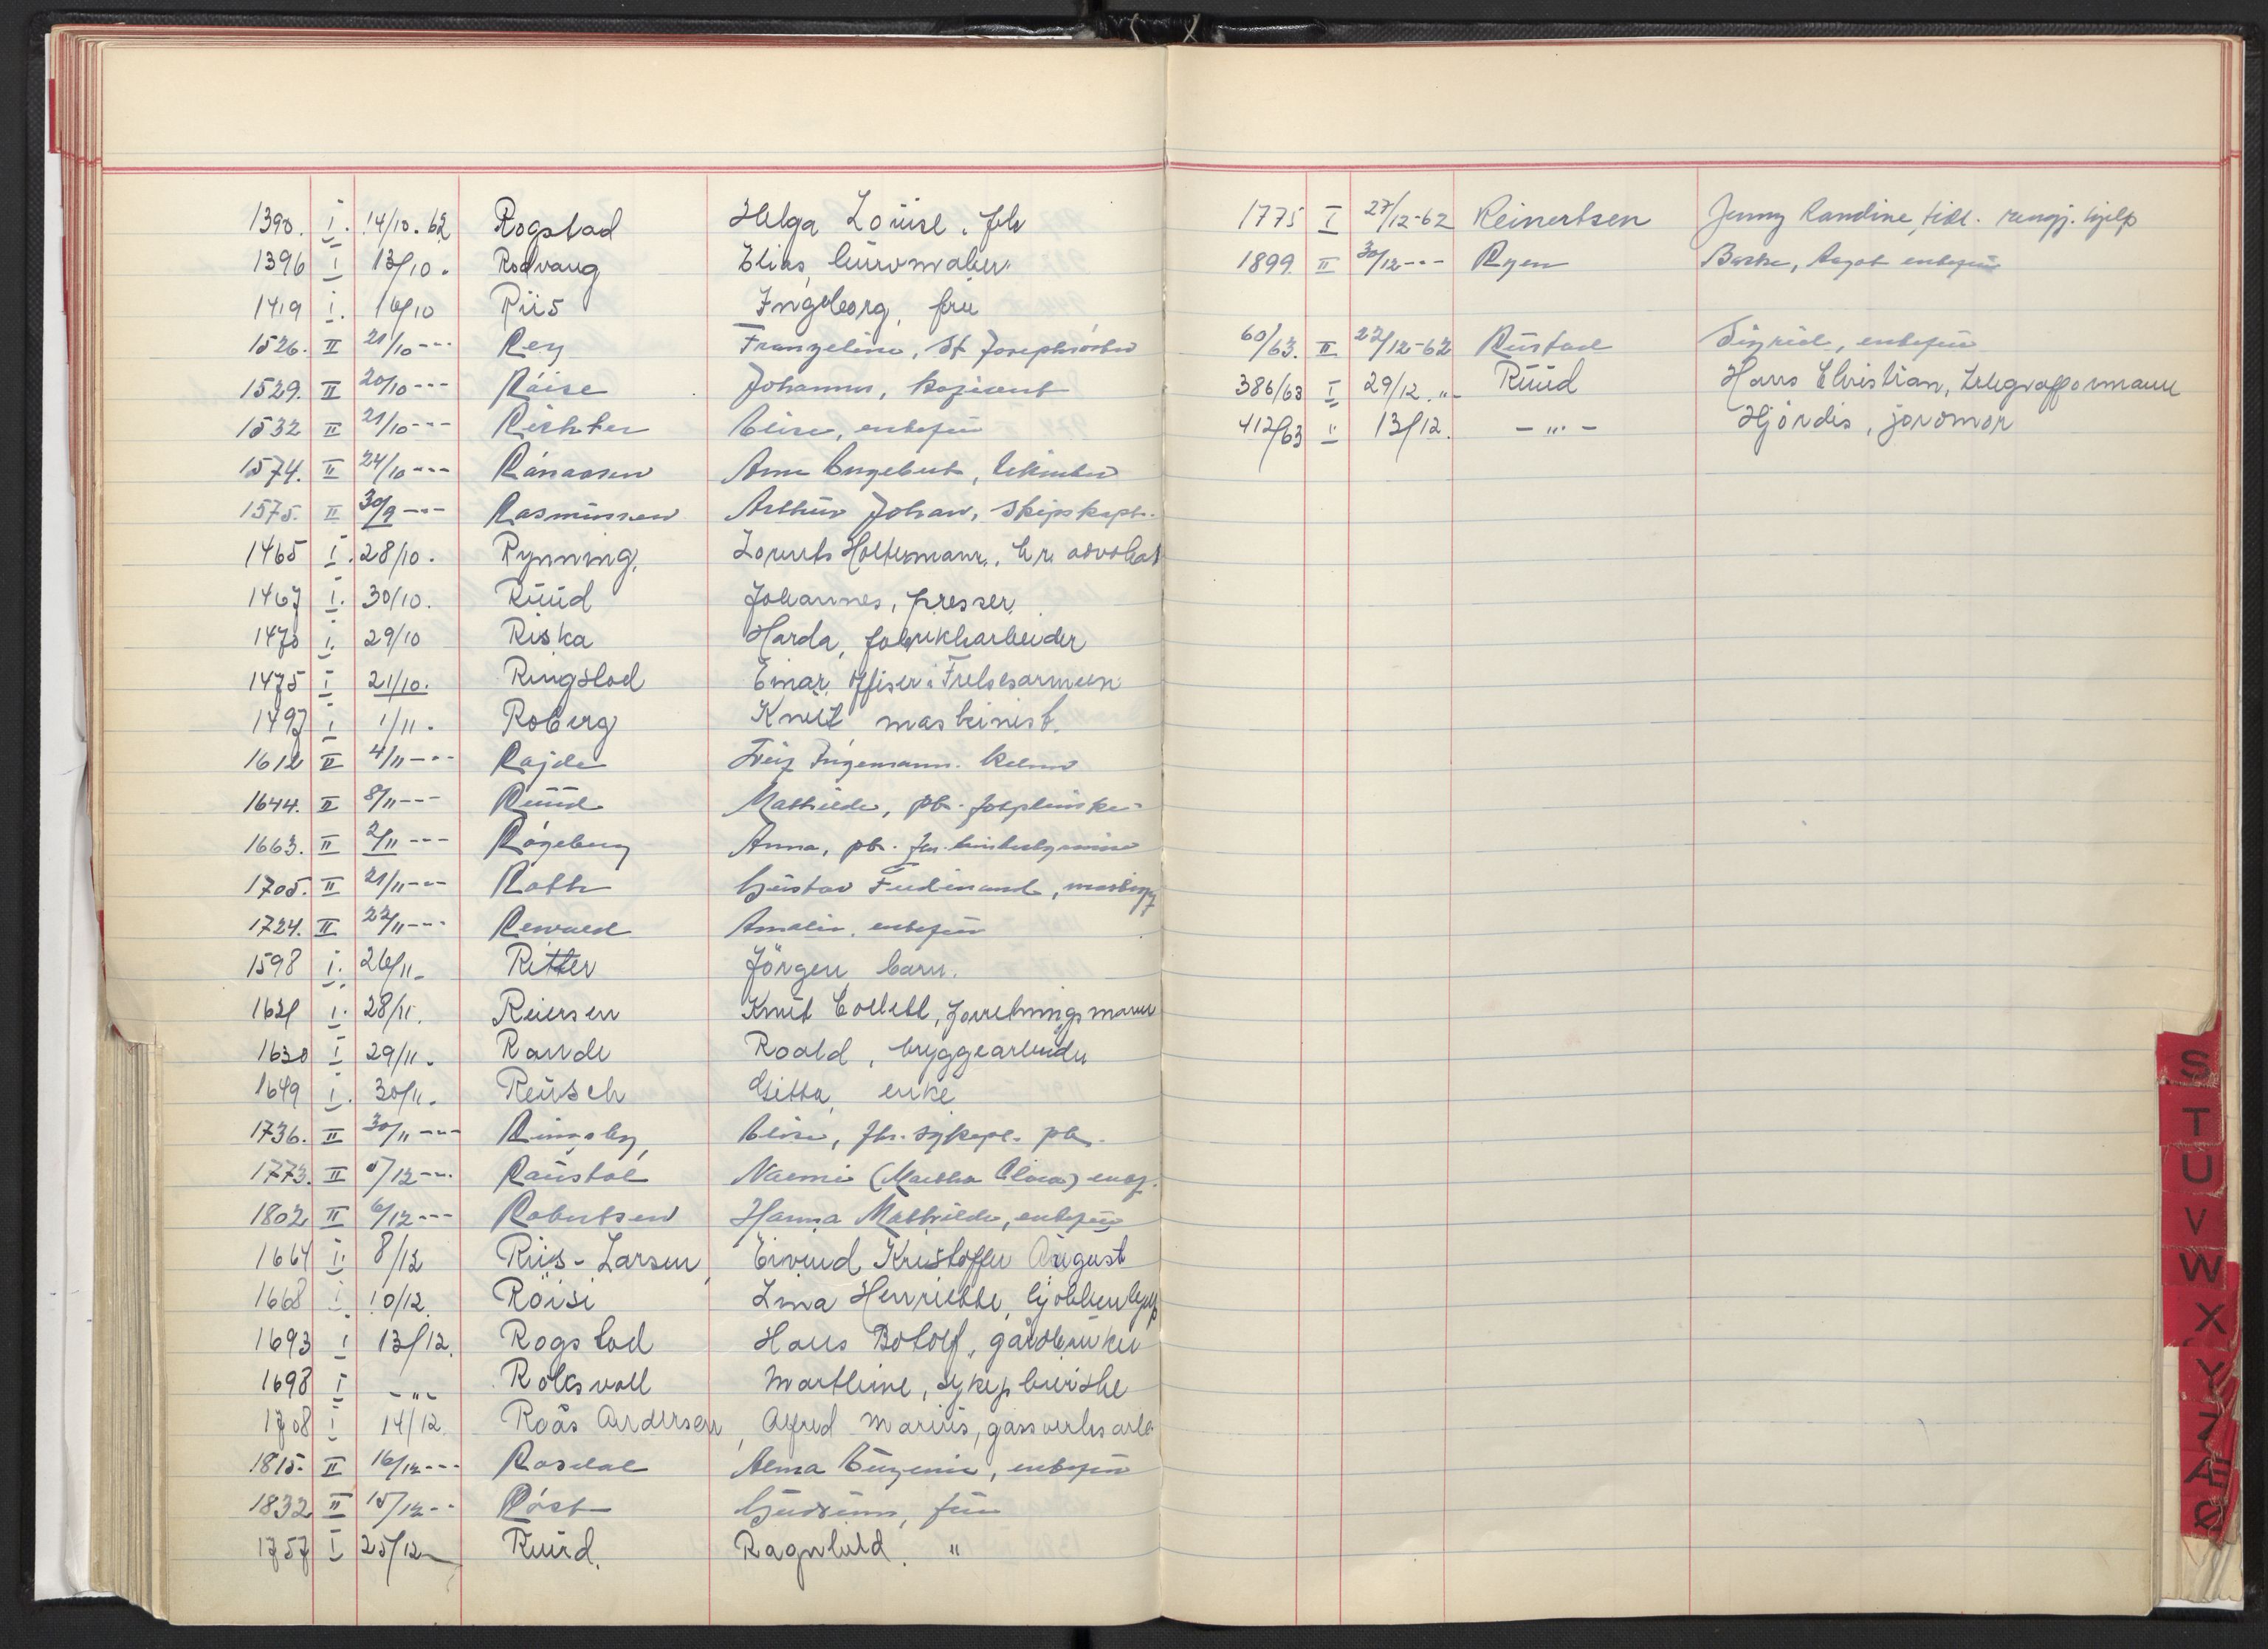 1390. I. 14/10.62 Rogstad Helga Louise, frk
1396 I 13/10. Rodvang Elias, buromaker
1419 I. 16/10 Riis Ingeborg, frü
1526. II 21/10 --- Rey Franzeline, St. Josephsöster
1529. II 20/10 --- Röise Johannes,
1532 II 21/10 --- Richter Elise, enkefrü
1574. II 24/10 --- Rånaasen Arne Engebret,
1575. II 30/9 --- Rasmüssen Arthür Johan, skipskapt.
1465 I. 28/10. Rynning, Lorents Holtermann, h.r. advokat
1467 I. 30/10. Rüüd Johannes, presser
1470 I. 29/10 Riska Harda, fabrikkarbeider
1475 I 21/10. Ringstad Einar, offiser i Frelsesarmeen
1497 I 1/11. Roberg Knüt, maskinist.
1612 II 4/11 --- Rajde Ingemann.
1644. II 8/11 --- Rüüd Mathilde, pb.
1663. II 2/11 --- Rögeberg Anna, pb. frv.
1705. II 21/11 --- Roth Güstav Ferdinand,
1724. II 22/11 --- Rewald Amalie, enkefrü
1598 I. 26/11. Ritter Jörgen barn.
1621 I. 28/11. Reiersen Knüt Collett, forretningsmann
1630 I 29/11. Rande Roald, bryggearbeider
1649 I. 30/11. Reüsch Gitta, enke
1736. II 30/11 --- Ringsby, Elise, fhv. sykepl. pb.
1773. II 5/12 --- Raüstöl Naemi (Martha Clara) enkf.
1802 II 6/12 --- Robertsen Hanna Mathilde, enkefrü
1664 I. 8/12 Riis-Larsen, Eivind Kristoffer August
1668 I 10/12. Röisi Lina Henriette, kjökkenhjelp
1693 I 13/12. Rogstad Hans Botolf, gårdbrüker
1698 I -"- Roksvoll Marthine, sykepleierske
1708 I 14/12. Roås Andersen, Alfred Mariüs, gassverksarb
1815. II 16/12 --- Rosdal Alma Eügenie, enkefrü
1832 II 15/12 --- Röst Güdrünn, früe
1757 I 25/12 Rüüd. Ragnhild. "
1775 I 27/12-62 Reinertsen Jenny Randine, tidl. rengj. hjelp
1899. II 30/12 --- Ryen Aagot enkefrü
60/63. II 22/12-62 Rüstad Sigrid, enkefrü
386/63 I 29/12. " - Rüüd Hans Christian, telegrafformann
412/63 I 13/12. - " - Hjördis, jordmor
S
T
U
V
W
X
Y
Z
Æ
Ø